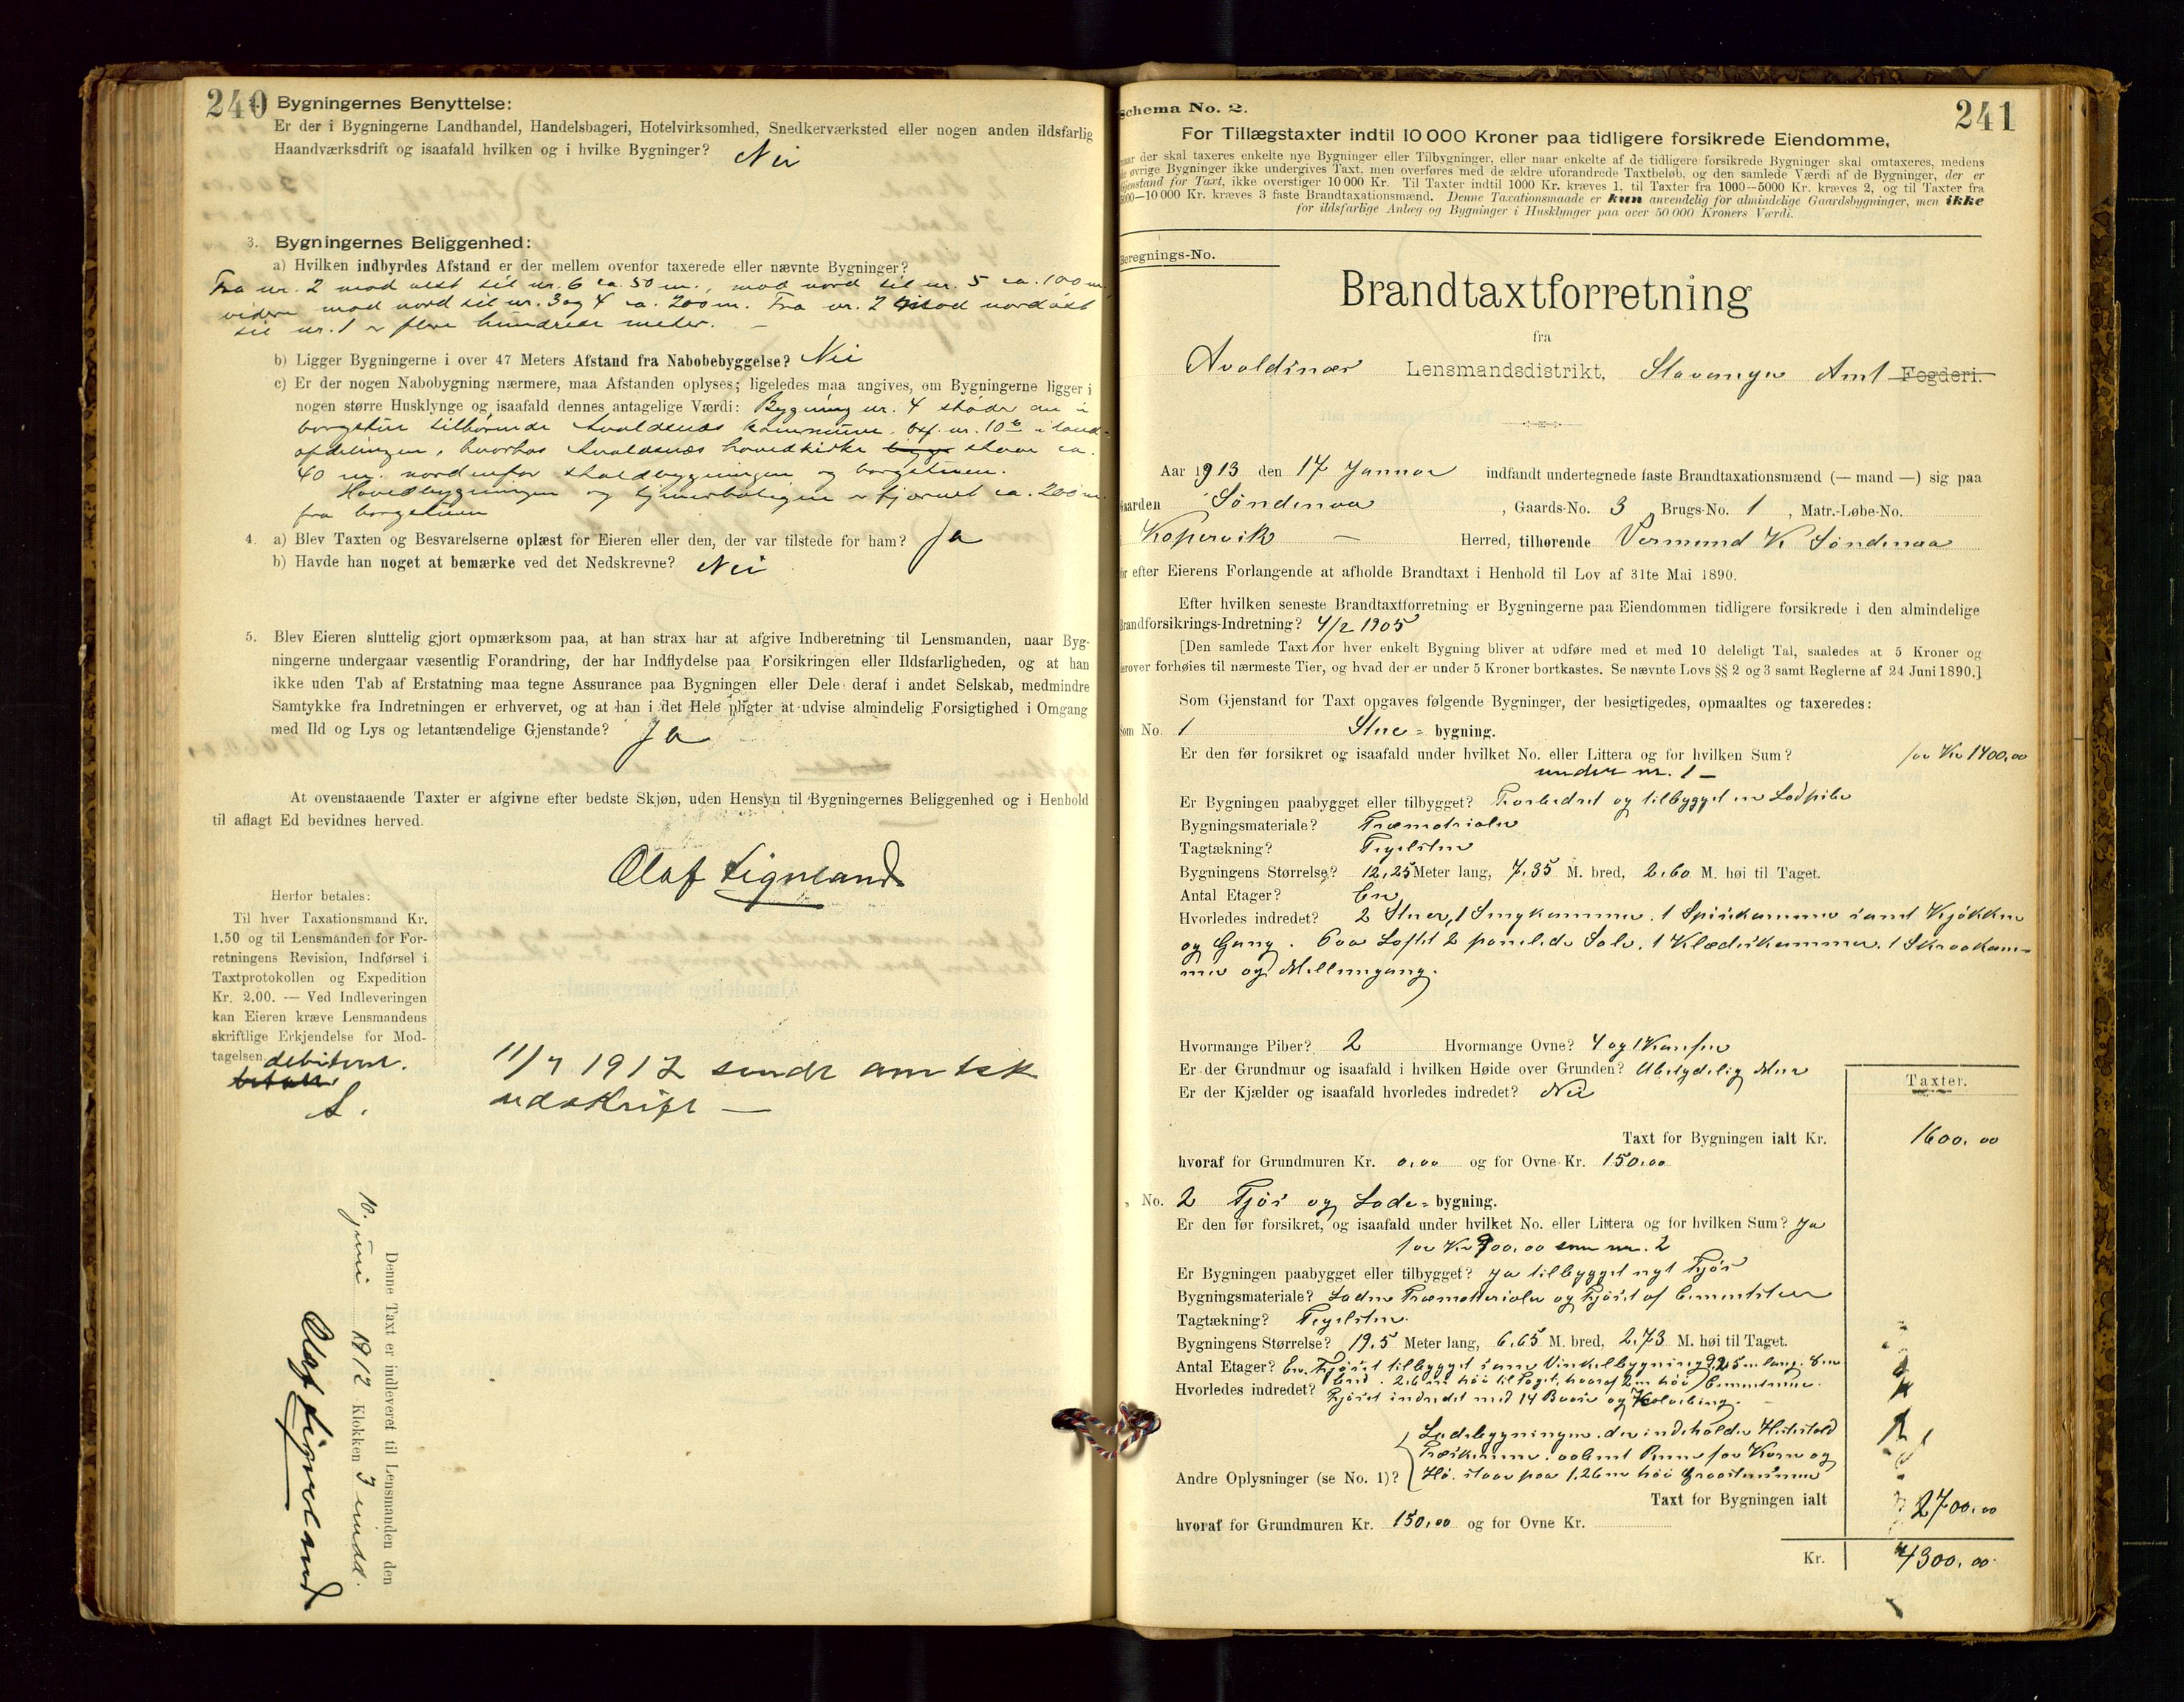 240
Bygningernes Benyttelse:
Er der i Bygningerne Landhandel, Handelsbageri, Hotelvirksomhed, Snedkerværksted eller nogen anden ildsfarlig
Haandværksdrift og isaafald hvilken og i hvilke Bygninger? Nei
3. Bygningernes Beliggenhed:
a) Hvilken indbyrdes Afstand er der mellem ovenfor taxerede eller nævnte Bygninger?
Fra nr. 2 mod vest til nr. 6 ca. 50 m., mod nord til nr. 5 ca. 100 m.
videre mod nord til nr. 3 og 4 ca. 200 m. Fra nr. 2 mod nordøst
til nr. 1 er flere hundrede meter. —
b) Ligger Bygningerne i over 47 Meters Afstand fra Nabobebyggelse? Nei
c) Er der nogen Nabobygning nærmere, maa Afstanden oplyses; ligeledes maa angives, om Bygningerne ligger i
nogen større Husklynge og isaafald dennes antagelige Værdi: Bygning nr. 4 støder an i
borgstuen tilhørende Avaldsnes kommune. nr. 10
afdelingen, hvorhos Avaldsnes hovedkirke staar ca.
40 m. nordenfor staldbygningen og borgstuen.
Hovedbygningen og tjenerboligen er fjernet ca. 200 m.
fra borgstuen
4. a) Blev Taxten og Besvarelserne oplæst for Eieren eller den, der var tilstede for ham? Ja
b) Havde han noget at bemærke ved det Nedskrevne? Nei
5. Blev Eieren sluttelig gjort opmærksom paa, at han strax har at afgive Indberetning til Lensmanden, naar Byg-
ningerne undergaar væsentlig Forandring, der har Indflydelse paa Forsikringen eller Ildsfarligheden, og at han
ikke uden Tab af Erstatning maa tegne Assurance paa Bygningen eller Dele deraf i andet Selskab, medmindre
Samtykke fra Indretningen er erhvervet, og at han i det Hele pligter at udvise almindelig Forsigtighed i Omgang
med Ild og Lys og letantændelige Gjenstande? Ja
At ovenstaaende Taxter er afgivne efter bedste Skjøn, uden Hensyn til Bygningernes Beliggenhed og i Henhold
til aflagt Ed bevidnes herved.
Olaf Ligneland
Herfor betales:
Til hver Taxationsmand Kr.
1.50 og til Lensmanden for For-
retningens Revision, Indførsel i
Taxtprotokollen og Expedition
Kr. 2.00. — Ved Indleveringen
kan Eieren kræve Lensmandens
skriftlige Erkjendelse for Mod-
tagelsen. debiteret.
betalt
S.
11/7 1912 sendt
udskrift —
Denne Taxt er indleveret til Lensmanden den
10. juni 1912 Klokken 3 emdd.
Olaf Ligneland
241
Schema No. 2.
For Tillægstaxter indtil 10 000 Kroner paa tidligere forsikrede Eiendomme,
naar der skal taxeres enkelte nye Bygninger eller Tilbygninger, eller naar enkelte af de tidligere forsikrede Bygninger skal omtaxeres, medens
de øvrige Bygninger ikke undergives Taxt, men overføres med de ældre uforandrede Taxtbeløb, og den samlede Værdi af de Bygninger, der er
Gjenstand for Taxt, ikke overstiger 10 000 Kr. Til Taxter indtil 1000 Kr. kræves 1, til Taxter fra 1000—5000 Kr. kræves 2, og til Taxter fra
5000—10 000 Kr. kræves 3 faste Brandtaxationsmænd. Denne Taxationsmaade er kun anvendelig for almindelige Gaardsbygninger, men ikke
for ildsfarlige Anlæg og Bygninger i Husklynger paa over 50 000 Kroners Værdi.
Beregnings-No.
Brandtaxtforretning
fra
Avaldsnæs Lensmandsdistrikt, Stavanger Amt Fogderi.
Aar 1913 den 17 Januar indfandt undertegnede faste Brandtaxationsmænd (— mand —) sig paa
Gaarden Söndenaa, Gaards-No. 3, Brugs-No. 1, Matr.-Løbe-No.
Kopervik — Herred, tilhørende Vermund K Söndenaa
for efter Eierens Forlangende at afholde Brandtaxt i Henhold til Lov af 31te Mai 1890.
Efter hvilken seneste Brandtaxtforretning er Bygningerne paa Eiendommen tidligere forsikrede i den almindelige
Brandforsikrings-Indretning? 4/2 1905
[Den samlede Taxt for hver enkelt Bygning bliver at udføre med et med 10 deleligt Tal, saaledes at 5 Kroner og
derover forhøies til nærmeste Tier, og hvad der er under 5 Kroner bortkastes. Se nævnte Lovs §§ 2 og 3 samt Reglerne af 24 Juni 1890.]
Som Gjenstand for Taxt opgaves følgende Bygninger, der besigtigedes, opmaaltes og taxeredes:
Som No. 1 Stue-bygning.
Er den før forsikret og isaafald under hvilket No. eller Littera og for hvilken Sum? for Kr 1400,00
under nr. 1 —
Er Bygningen paabygget eller tilbygget? Forbedret og tilbygget en Lodpibe
Bygningsmateriale? Træmaterialer
Tagtækning? Teglsten
Bygningens Størrelse? 12,25 Meter lang, 7,35 M. bred, 2,60 M. høi til Taget.
Antal Etager? En
Hvorledes indredet? 2 Stuer, 1 Smykammer. 1 Spisekammer samt Kjøkken
og Gang. Paa Loftet 2 panelede Sale, 1 Klædeskammer, 1 Skraakam-
mer og Mellemgang.
Hvormange Piber? 2 Hvormange Ovne? 4 og 1 Komfur
Er der Grundmur og isaafald i hvilken Høide over Grunden? Ubetydelig Mur
Er der Kjælder og isaafald hvorledes indredet? Nei
Taxter.
Taxt for Bygningen ialt Kr. 1600,00
hvoraf for Grundmuren Kr. 0,00 og for Ovne Kr. 150,00
No. 2 Fjös og Lade-bygning.
Er den før forsikret, og isaafald under hvilket No. eller Littera og for hvilken Sum? Ja
for Kr 900,00 som nr. 2
Er Bygningen paabygget eller tilbygget? Ja tilbygget nyt Fjös
Bygningsmateriale? Laden Træmaterialer og Fjöset af Cementsten
Tagtækning? Teglsten.
Bygningens Størrelse? 19,5 Meter lang, 6,65 M. bred, 2,73 M. høi til Taget.
Antal Etager? En. Fjöset tilbygget som Vinkelbygning 9,25 m lang. 8 m
bred. 2,6 m höi til Taget, hvoraf 2 m höi Cementmur.
Hvorledes indredet? Fjöset indredet med 14 Baase og Kalvebing.
Ladebygningen der indeholder Hestestald
Træskemme. aabent Rum for Korn og
Andre Oplysninger (se No. 1)? Hö. staar paa 1,26 m höi Graastensmur
Taxt for Bygningen ialt 2700,00
hvoraf for Grundmuren Kr. 150,00 og for Ovne Kr.
Kr. 4300,00